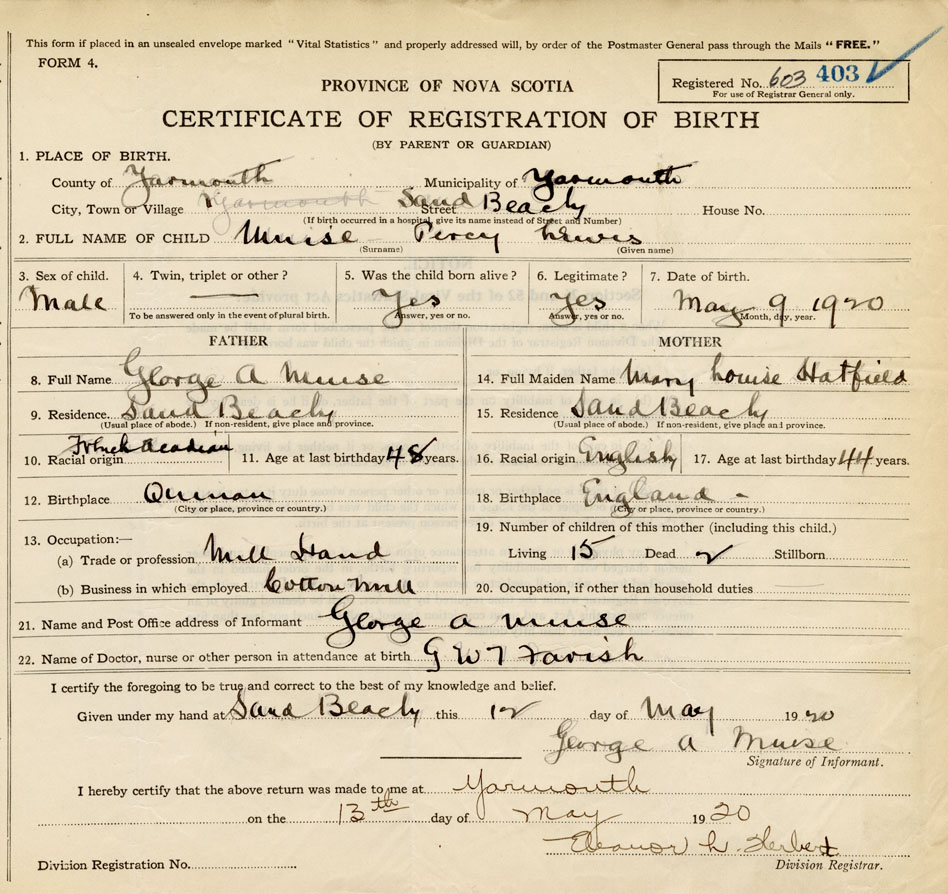 This form if placed in an unsealed envelope marked "Vital Statistics" and properly addressed will, by order of the Postmaster General pass through the Mails "FREE."
FORM 4.
Registered No. 603 403
For use of Registrar General only.
PROVINCE OF NOVA SCOTIA
CERTIFICATE OF REGISTRATION OF BIRTH
(BY PARENT OR GUARDIAN)
1. PLACE OF BIRTH.
County of Yarmouth Municipality of Yarmouth
City, Town or Village Yarmouth Street Sand Beach House No.
(If birth occurred in a hospital, give its name instead of Street and Number)
2. FULL NAME OF CHILD Muise Percy Lewis
(Surname) (Given name)
3. Sex of child. 4. Twin, triplet or other? 5. Was the child born alive? 6. Legitimate? 7. Date of birth.
Male — Yes Yes May 9 1920
To be answered only in the event of plural birth. Answer, yes or no. Answer, yes or no. Month, day, year.
FATHER
8. Full Name George A Muise
9. Residence Sand Beach
(Usual place of abode.) If non-resident, give place and province.
10. Racial origin French Acadian 11. Age at last birthday 48 years.
12. Birthplace Quinan
(City or place, province or country.)
13. Occupation:—
(a) Trade or profession Mill Hand
(b) Business in which employed Cotton Mill
MOTHER
14. Full Maiden Name Mary Louise Hatfield
15. Residence Sand Beach
(Usual place of abode.) If non-resident, give place and province.
16. Racial origin English 17. Age at last birthday 44 years.
18. Birthplace England -
(City or place, province or country.)
19. Number of children of this mother (including this child.)
Living 15 Dead 2 Stillborn
20. Occupation, if other than household duties
21. Name and Post Office address of Informant George A Muise
22. Name of Doctor, nurse or other person in attendance at birth G W T Farish
I certify the foregoing to be true and correct to the best of my knowledge and belief.
Given under my hand at Sand Beach this 12 day of May 1920
George A Muise
Signature of Informant.
I hereby certify that the above return was made to me at Yarmouth
on the 13th day of May 1920
Eleanor L. Herbert
Division Registration No. Division Registrar.